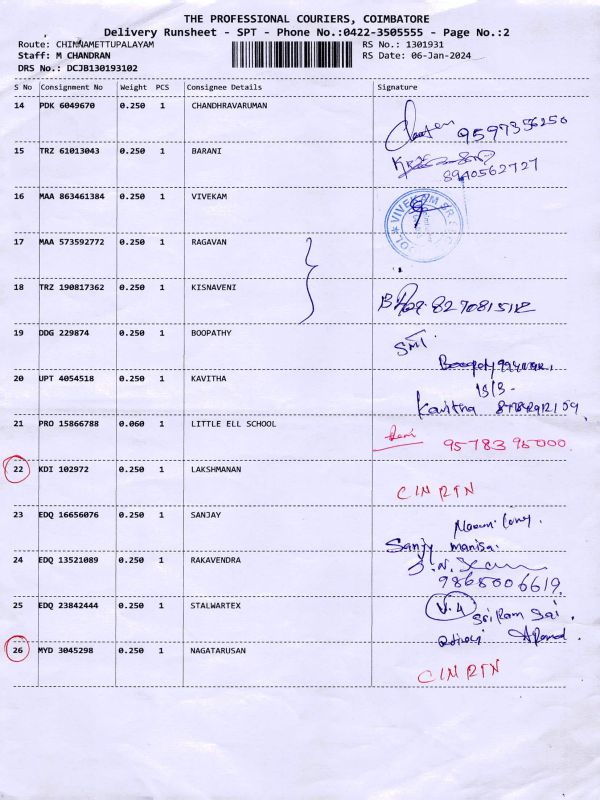 THE PROFESSIONAL COURIERS, COIMBATORE
Delivery Runsheet - SPT - Phone No.:0422-3505555 - Page No.:2
Route: CHINNAMETTUPALAYAM RS No.: 1301931
Staff: M CHANDRAN RS Date: 06-Jan-2024
DRS No.: DCJB130193102
S No Consignment No Weight PCS Consignee Details Signature
14 PDK 6049670 0.250 1 CHANDHRAVARUMAN
9597356250
15 TRZ 61013043 0.250 1 BARANI
8940562727
16 MAA 863461384 0.250 1 VIVEKAM
17 MAA 573592772 0.250 1 RAGAVAN
18 TRZ 190817362 0.250 1 KISNAVENI
19 DDG 229874 0.250 1 BOOPATHY
20 UPT 4054518 0.250 1 KAVITHA
Kavitha
21 PRO 15866788 0.060 1 LITTLE ELL SCHOOL
9578395000
22 KDI 102972 0.250 1 LAKSHMANAN
CIN RTN
23 EDQ 16656076 0.250 1 SANJAY
Sanjy
24 EDQ 13521089 0.250 1 RAKAVENDRA
9865006619
25 EDQ 23842444 0.250 1 STALWARTEX
V.4 Sri Ram Sai
26 MYD 3045298 0.250 1 NAGATARUSAN
CIN RTN